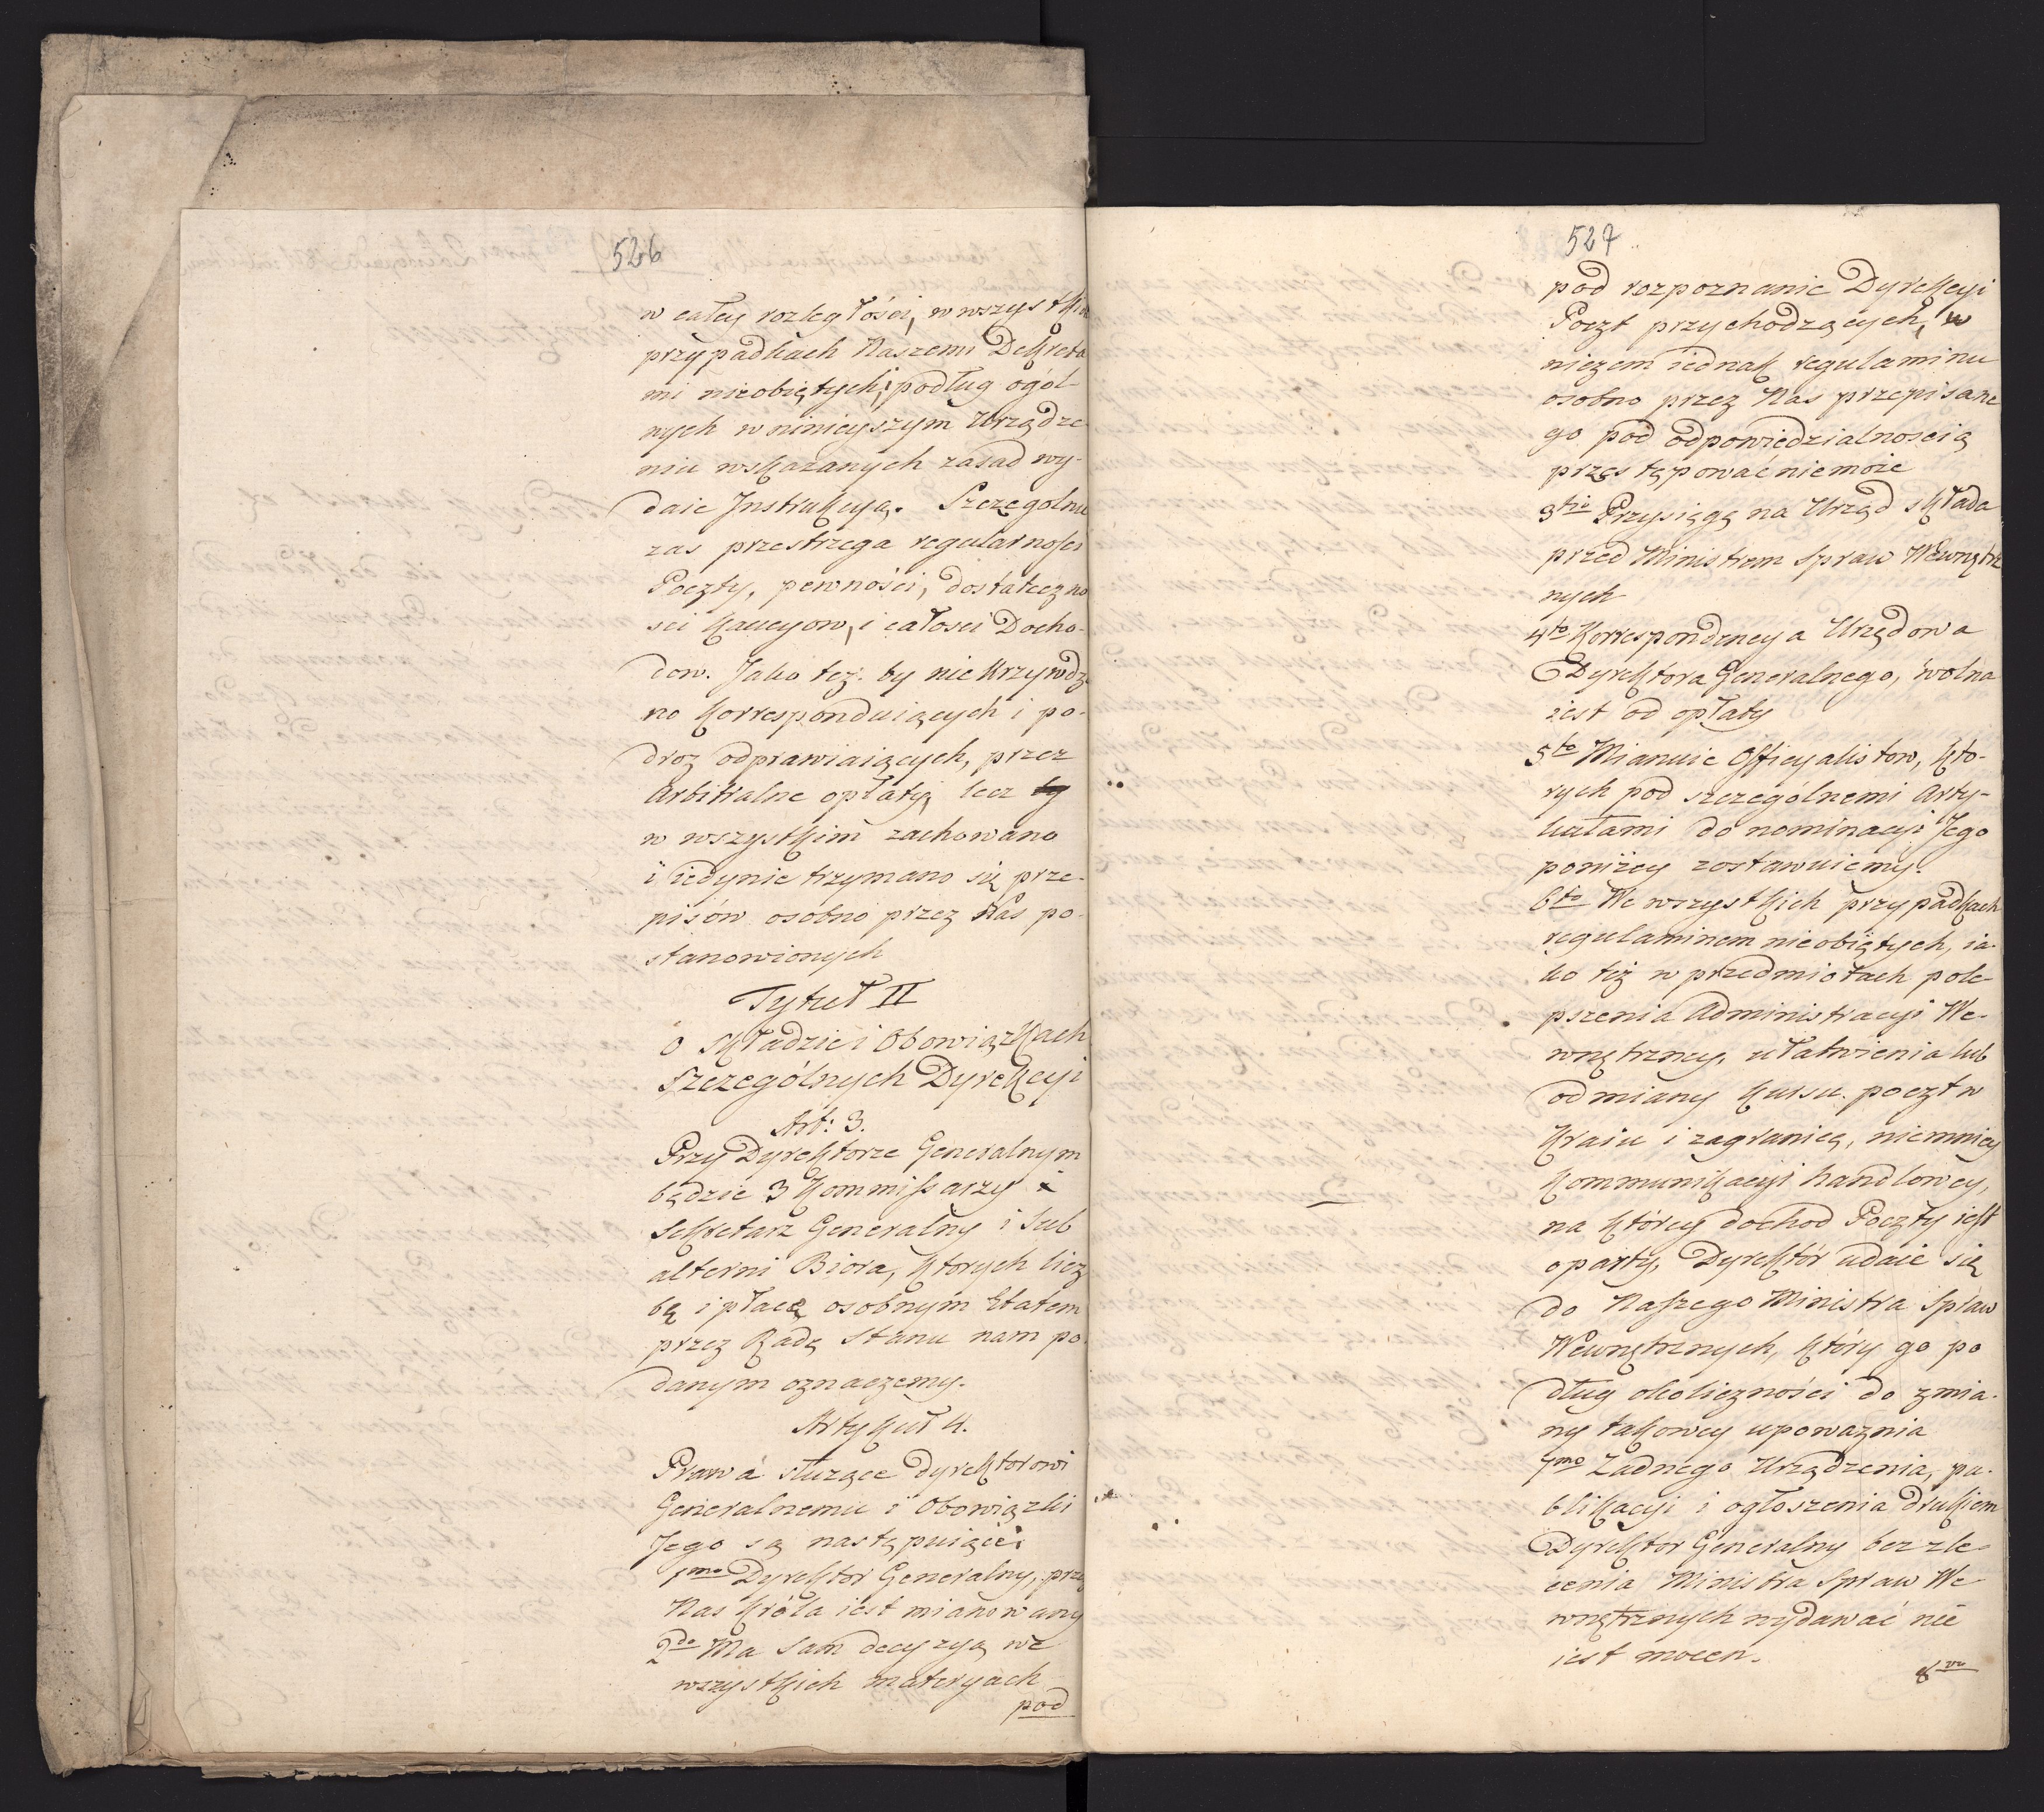 526
w całey rozległości, w wszystkich
przypadkach Naszemi Dekreta
mi nieobiętych, podług ogól-
nych w ninieyszym Urządze
niu wskazanych zasad wy-
daie Instrukcyą. Szczegolnie
zas przestrzega regularnosci
Poczty, pewności, dostateczno
sci Kaucyow, i całosci Docho-
dow. Jako też. by nie Krzywdzo
no Korrespondujących i po-
droż odprawiaiących, przez
Arbitralne opłaty, lecz
w wszystkim zachowano
i iedynie trzymano się prze-
pisów osobno przez Nas po-
stanowionych
Tytuł II
o składzie i Obowiązkach
szczególnych Dyrekcyi
Art: 3.
Przy Dyrektorze Generalnym
będzie 3 Kommissarzy i
Sekretarz Generalny i Sub
alterni Biora, których licz
bę i płacę osobnym Etatem
przez Radę Stanu nam po-
danym oznaczemy.
Artykuł 4.
Prawa służące Dyrektorowi
Generalnemu i Obowiązki
Jego są następuiące:
1mo Dyrektor Generalny, przez
Nas Króla iest mianowany
2do Ma sam decyzyą we
wszystkich materyach
pod
527
pod rozpoznanie Dyrekcyi
Poczt przychodzących, w
niczem iednak regulaminu
osobno przez Nas przepisane
go pod odpowiedzialnoscią
przestępować niemoże
3tio Przysięgę na Urząd składa
przed Ministrem Spraw Wewnętrz
nych
4to Korrespondencya Urzędowa
Dyrektora Generalnego, wolna
iest od opłaty
5to Mianuie Officyalistow, kto-
rych pod szczególnemi Arty-
kułami do nominacyi Jego
poniżey zostawuiemy.
6to We wszystkich przypadkach
regulaminem nieobiętych, ia-
ko też w przedmiotach pole-
pszenia Administracyi We-
wnętrzney, ułatwienia lub
odmiany kursu poczt w
Kraiu i zagranicą, niemniey
Kommunikacyi handlowey,
na którey dochod Poczty iest
oparty, Dyrektór udaie się
do Naszego Ministra Spraw
Wewnętrznych, który go po
dług okoliczności do zmia-
ny takowey upoważnia
7mo Żadnego Urządzenia, pu-
blikacyi i ogłoszenia drukiem
Dyrektor Generalny bez zle-
cenia Ministra Spraw We
wnętrznych wydawać nie
iest mocen.
8vo